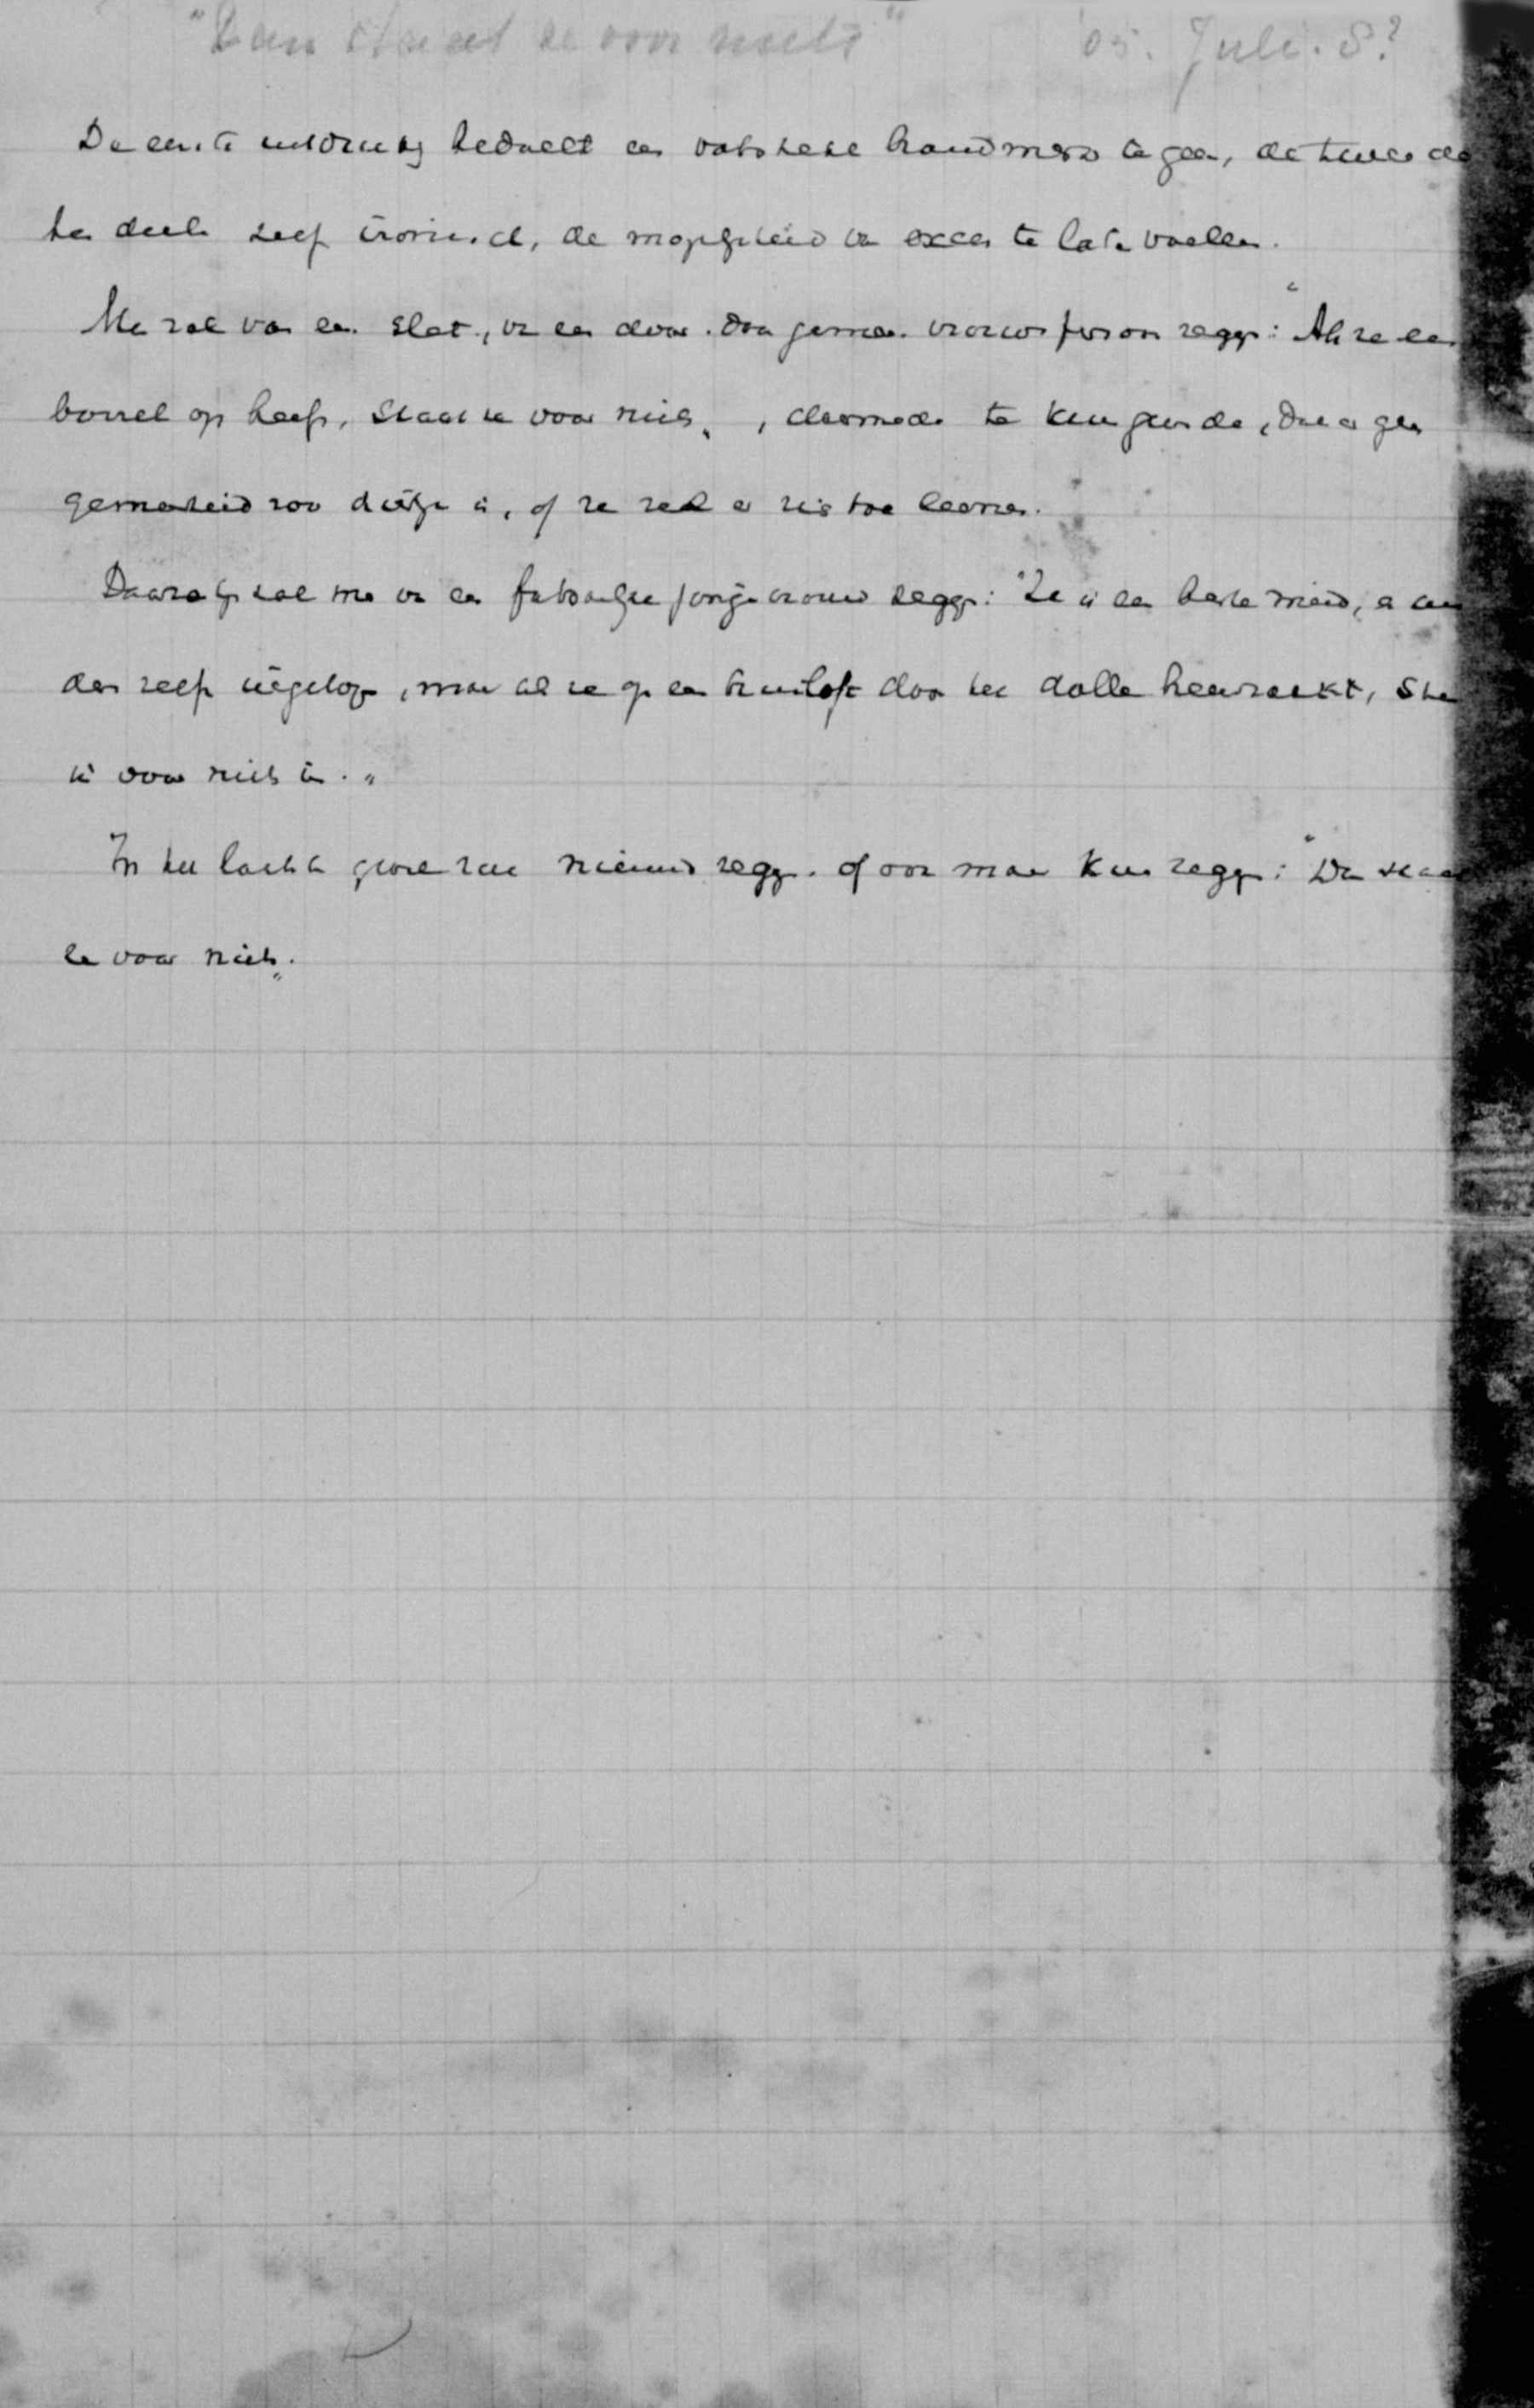 "Dan staat ze voor niets" '05. Juli. S?
De eerste uitdrukking bedoelt een vaststaand brandmerk te geven, de tweede
ten deele zelf ironisch, de mogelijkheid van exces te laten voelen.
Men zal van een slet, van een door en door gemeen vrouwspersoon zeggen: "Als ze een
borrel op heeft, staat ze voor niets", daarmede te kennen gevende, dat er geen
gemeenheid zoo diep is, of ze zal er zich toe leenen.
Daarentegen zal men van een fatsoenlijke jonge vrouw zeggen: "Ze is een beste meid, en
zelfs, maar als ze op een bruiloft door het dolle heenraakt, sta
ik voor niets in."
In het laatste geval zal niemand zeggen of ook maar kunnen zeggen: "Dan staat
ze voor niets".